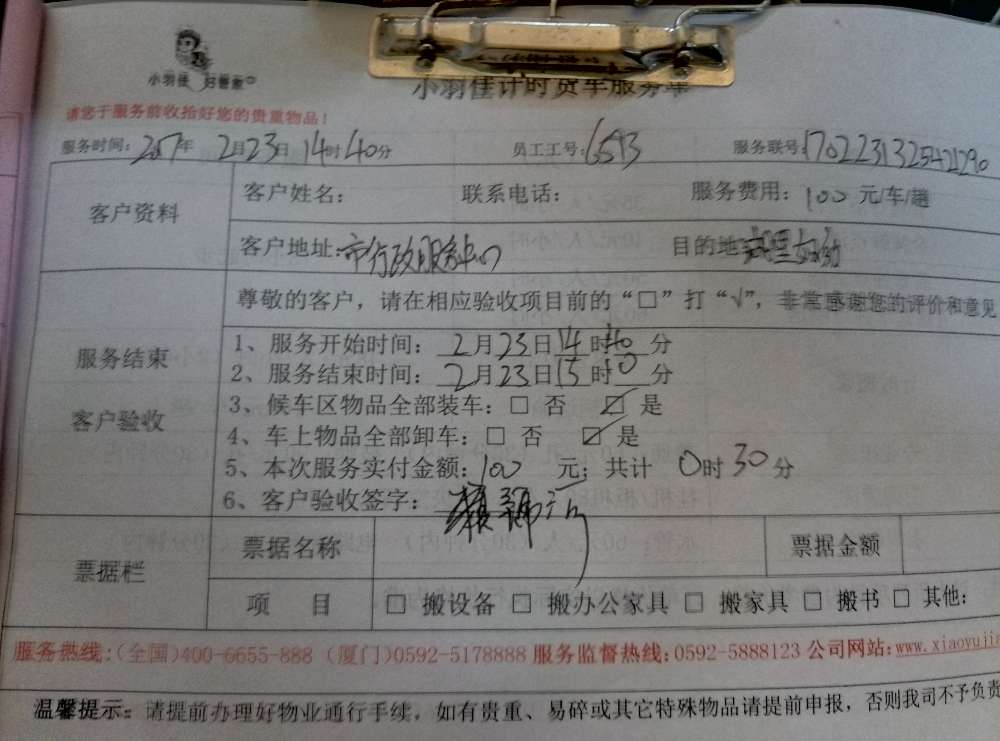 小羽佳 好管家
小羽佳计时货车服务单
请您于服务前收拾好您的贵重物品！
服务时间：2017年 2月23日 14时40分 员工工号：6513 服务联号：
客户资料 客户姓名： 联系电话： 服务费用：100 元/车/趟
客户地址：市行政服务中心 目的地
尊敬的客户，请在相应验收项目前的“□”打“√”，非常感谢您的评价和意见
服务结束
客户验收
1、服务开始时间：2月23日14时40分
2、服务结束时间：2月23日15时10分
3、候车区物品全部装车：□ 否 ☑ 是
4、车上物品全部卸车：□ 否 ☑ 是
5、本次服务实付金额：100 元；共计 0时30分
6、客户验收签字：
票据栏 票据名称 票据金额
项 目 □ 搬设备 □ 搬办公家具 □ 搬家具 □ 搬书 □ 其他：
服务热线：(全国)400-6655-888 (厦门)0592-5178888 服务监督热线：0592-5888123 公司网站：www.xiaoyujia
温馨提示：请提前办理好物业通行手续，如有贵重、易碎或其它特殊物品请提前申报，否则我司不予负责